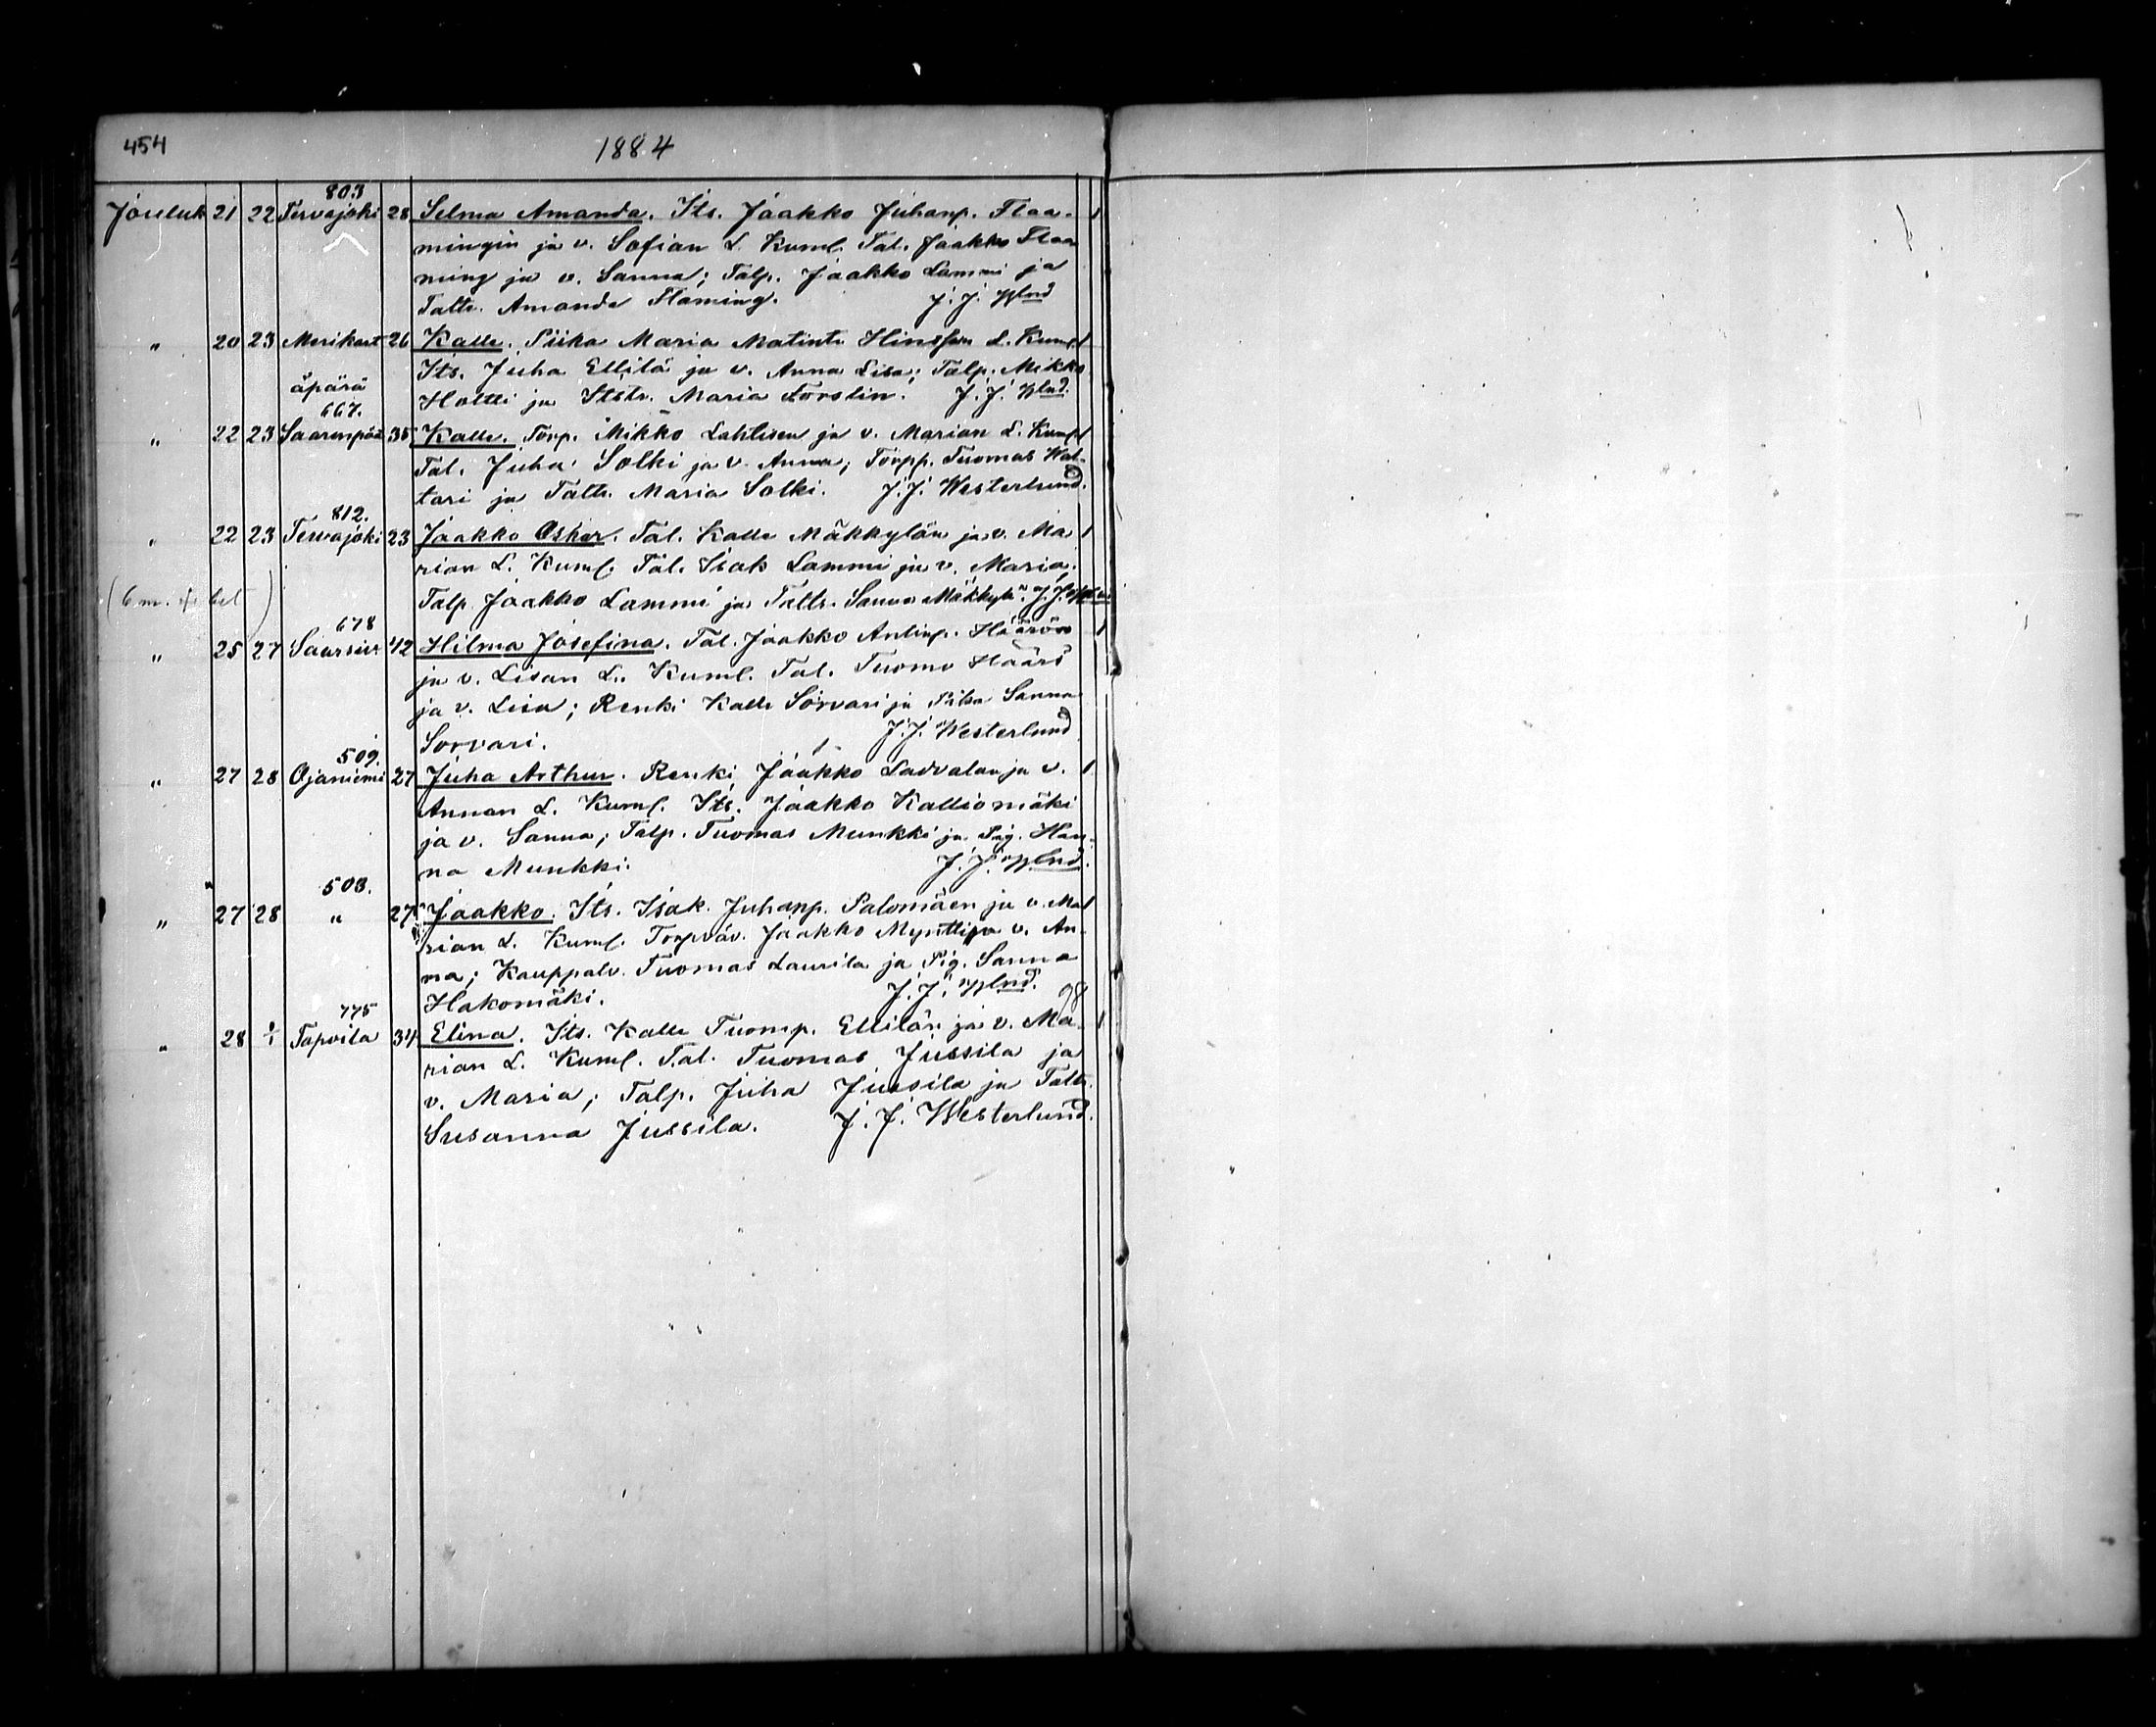 454
1884
803
Jouluk 21 22 Tervajoki 28 Selma Amanda. Its. Jaakko Juhanp. Flaa- 1
mingin ja v. Sofian L. Kuml. Tal. Jaakko Flaa
ming ja v. Sanna; Talp. Jaakko Lammi ja
Taltr. Amanda Flaming. J. J. Wlnd
" 20 23 Merikart 26 Kalle. Piika Maria Matintr L. Kuml. 1
äpärä Its. Juha Ellilä ja v. Anna Lisa; Talp. Mikko
667. Holtti ja Itstr. Maria Forslin. J. J. Wlnd.
" 22 23 Saarenpää 35 Kalle. Torp. Mikko Lahtisen ja v. Marian L. Kuml. 1
Tal. Juha Solki ja v. Anna; Torpp. Tuomas Wal-
tari ja Taltr. Maria Solki. J. J. Westerlund.
812.
" 22 23 Tervajoki 23 Jaakko Oskar. Tal. Kalle Mäkkylän ja v. Ma 1
rian L. Kuml. Tal. Isak Lammi ja v. Maria;
(6 m.)
Talp Jaakko Lammi ja Taltr. Sanna Mäkkylä. J. J.
678
" 25 27 42 Hilma Josefina. Tal. Jaakko Antinp. Häärön 1
ja v. Lisan L. Kuml. Tal. Tuomo Häärö
ja v. Lisa; Renki Kalle Sorvari ja Piika Sanna
Sorvari. J. J. Westerlund
509.
" 27 28 Ojaniemi 27 Juha Arthur. Renki Jaakko Ladvalan ja v. 1
Annan L. Kuml. Its. Jaakko Kalliomäki
ja v. Sanna; Talp. Tuomas Munkki ja Pig. Han-
na Munkki. J. J. Wlnd.
503.
" 27 28 " 27 Jaakko. Its. Isak Juhanp. Palomäen ja v. Ma 1
rian L. Kuml. Torpväv. Jaakko Myntti ja v. An-
na; Kauppalv. Tuomas Laurila ja Pig. Sanna
Hakomäki. J. J. Wlnd. 98
775
" 28 1/1 Tapoila 34 Elina. Its. Kalle Tuomp. Ellilän ja v. Ma- 1
rian L. Kuml. Tal. Tuomas Jussila ja
v. Maria; Talp. Juha Jussila ja Taltr.
Susanna Jussila. J. J. Westerlund.